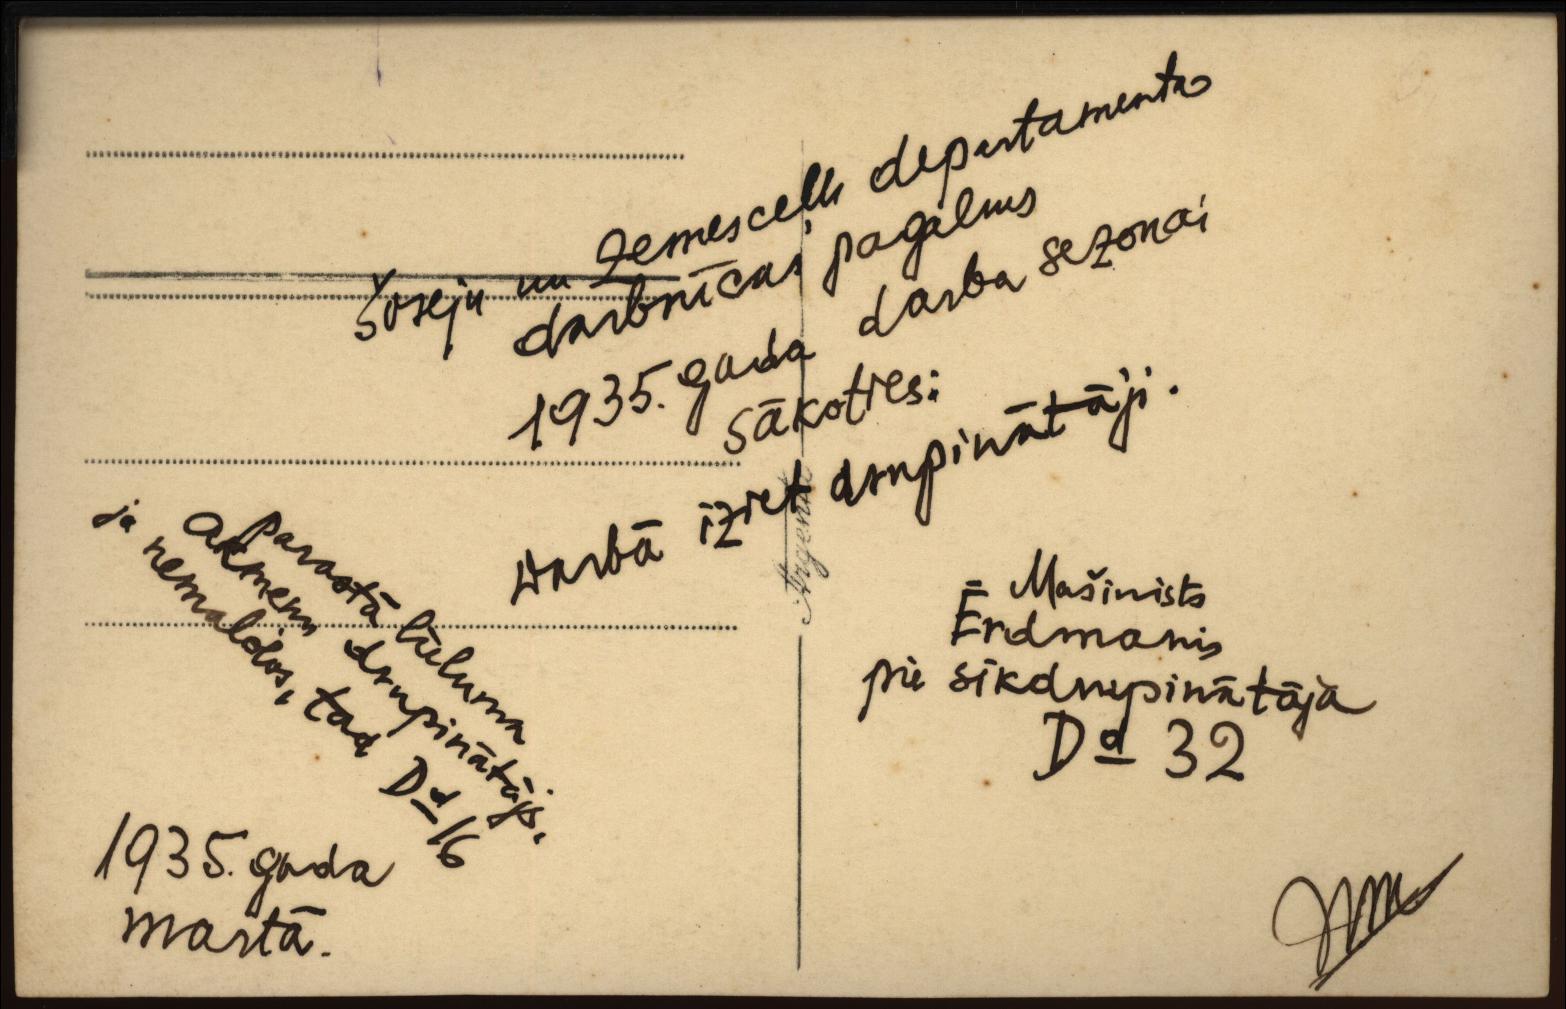 Šoseju un zemesceļu departamenta
darbnīcas pagalms
1935. gada darba sezonai
sākoties:
Darbā iziet drupinātāji.
Parastā lieluma
akmeņu drupinātājs,
ja nemaldos, tad Dd 16
1935. gada
martā.
Mašinists
Ērdmanis
pie sīkdrupinātāja
Dd 32